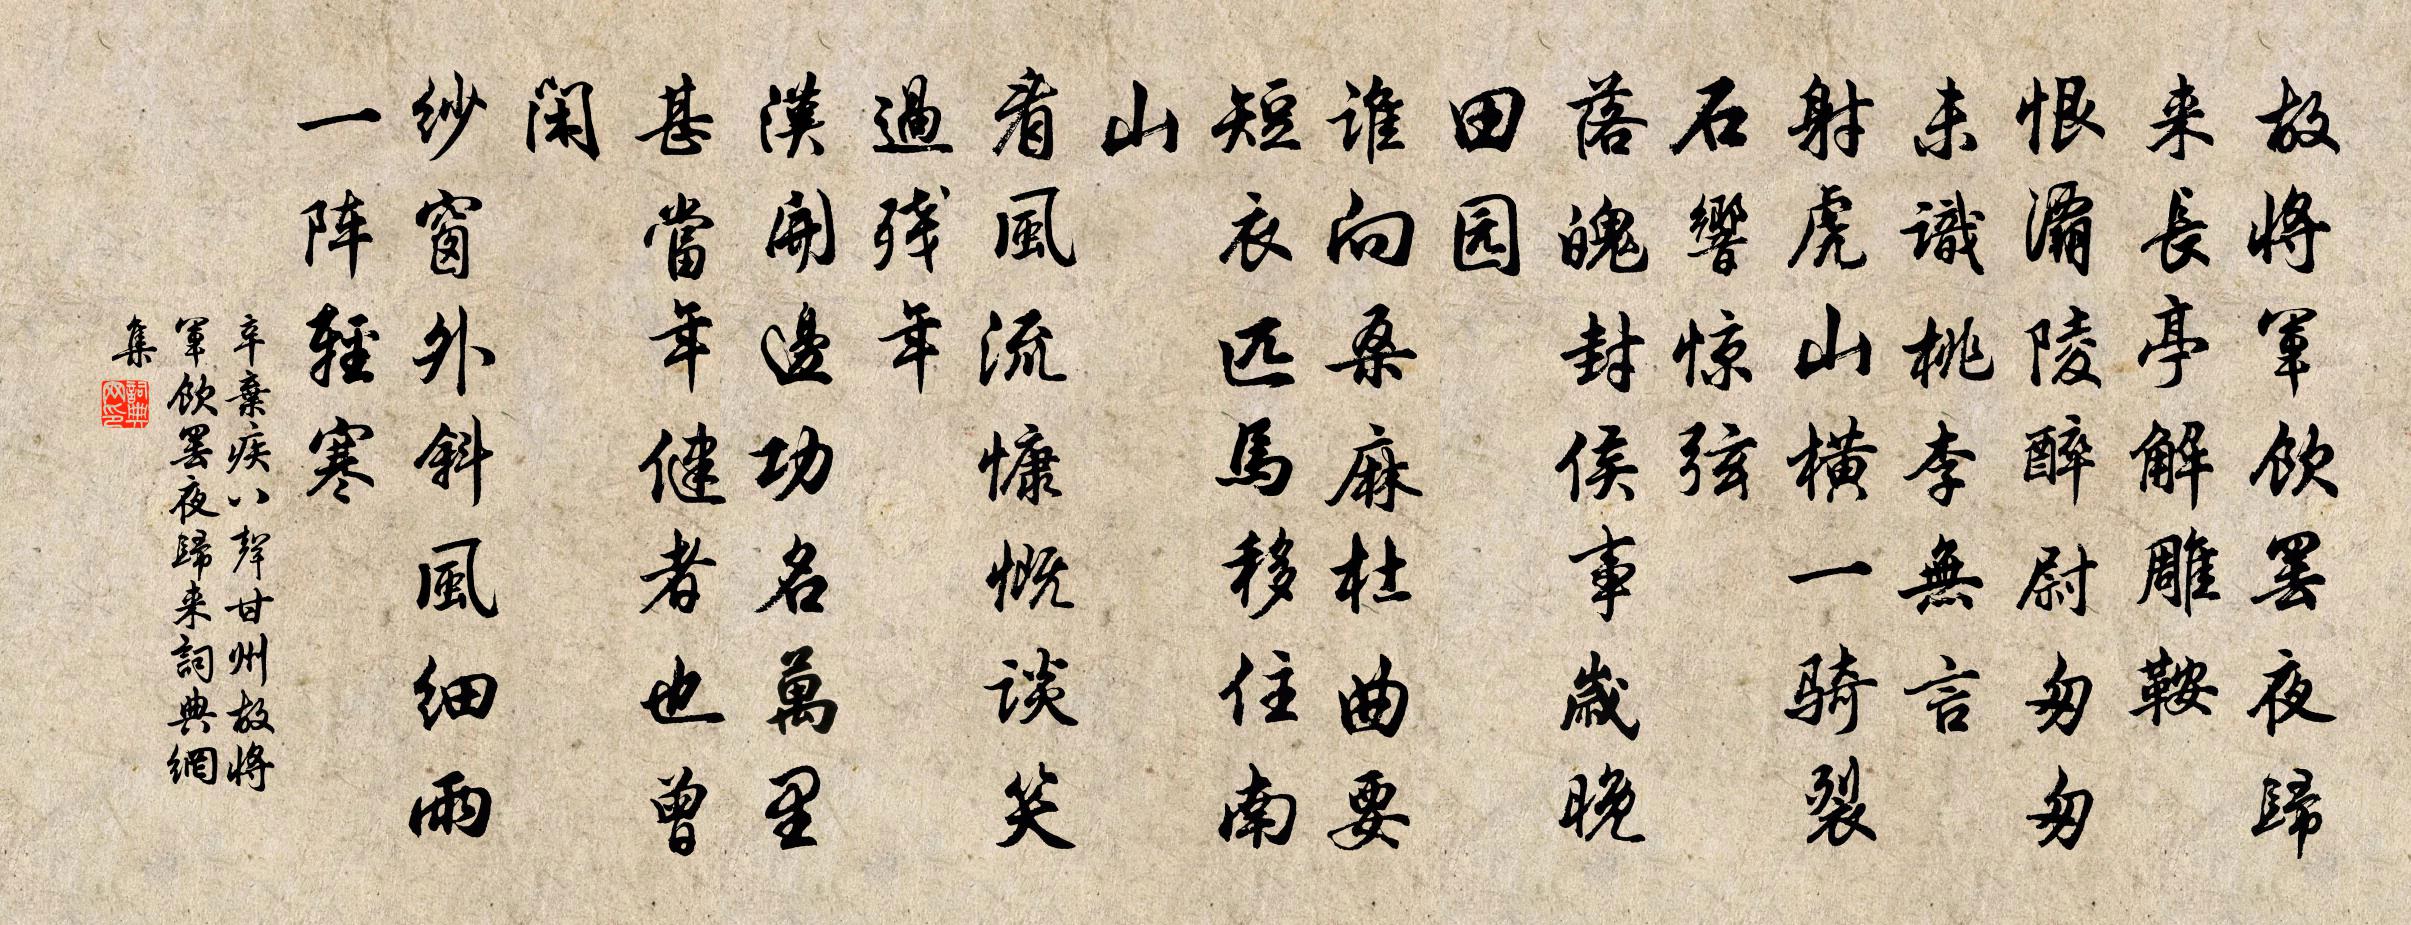 故将軍飲罢夜歸
来長亭解雕鞍
恨灞陵醉尉匆匆
未識桃李無言
射虎山横一骑裂
石響惊弦
落魄封侯事歲晚
田园
谁向桑麻杜曲要
短衣匹馬移住南
山
看風流慷慨谈笑
過残年
漢開邊功名萬里
甚當年健者也曾
閑
纱窗外斜風細雨
一阵輕寒
辛棄疾八聲甘州故将
軍飲罢夜歸来詞典網
集
詞典
网印